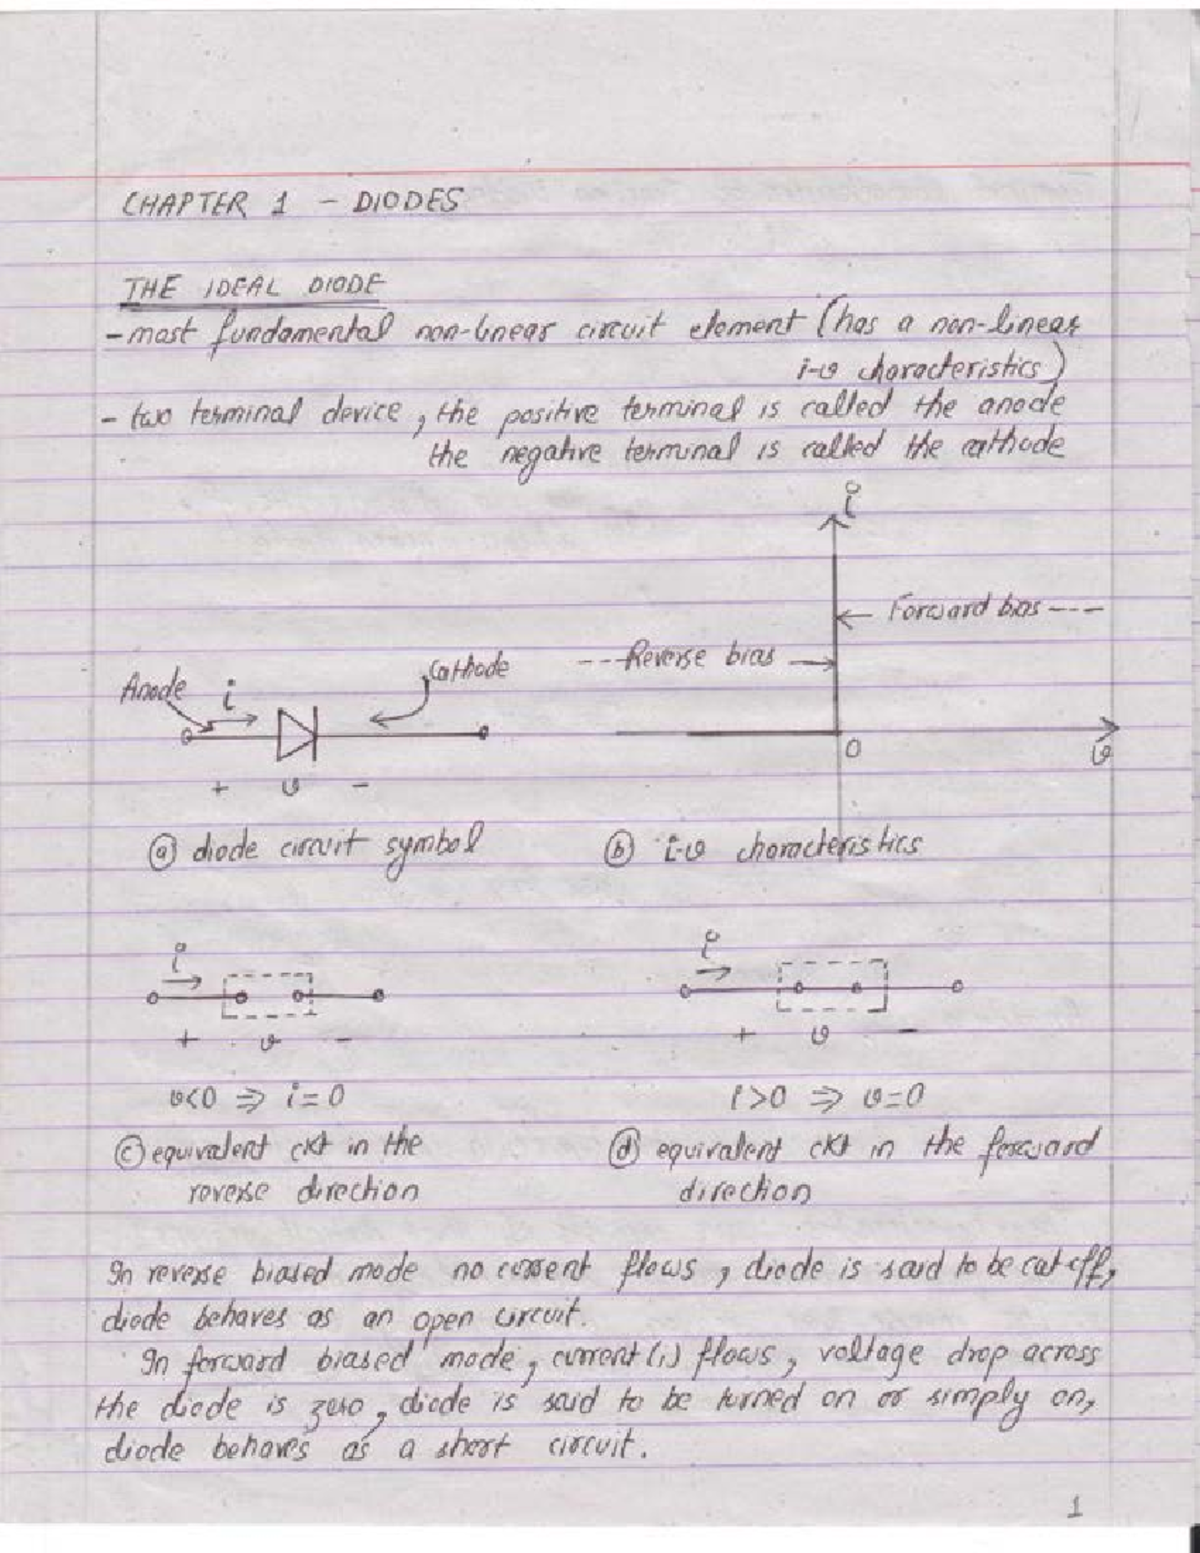 CHAPTER 1 - DIODES
THE IDEAL DIODE
- most fundamental non-linear circuit element (has a non-linear
i-v characteristics)
- two terminal device, the positive terminal is called the anode
the negative terminal is called the cathode
i
← Forward bias ----
---Reverse bias →
Anode i Cathode
0
v
+ v -
(a) diode circuit symbol
(b) i-v characteristics
i
i
+ v -
+ v -
v<0 ⇒ i=0
i>0 ⇒ v=0
(c) equivalent ckt in the
reverse direction
(d) equivalent ckt in the forward
direction
In reverse biased mode no current flows, diode is said to be cut off,
diode behaves as an open circuit.
In forward biased mode, current (i) flows, voltage drop across
the diode is zero, diode is said to be turned on or simply on,
diode behaves as a short circuit.
1